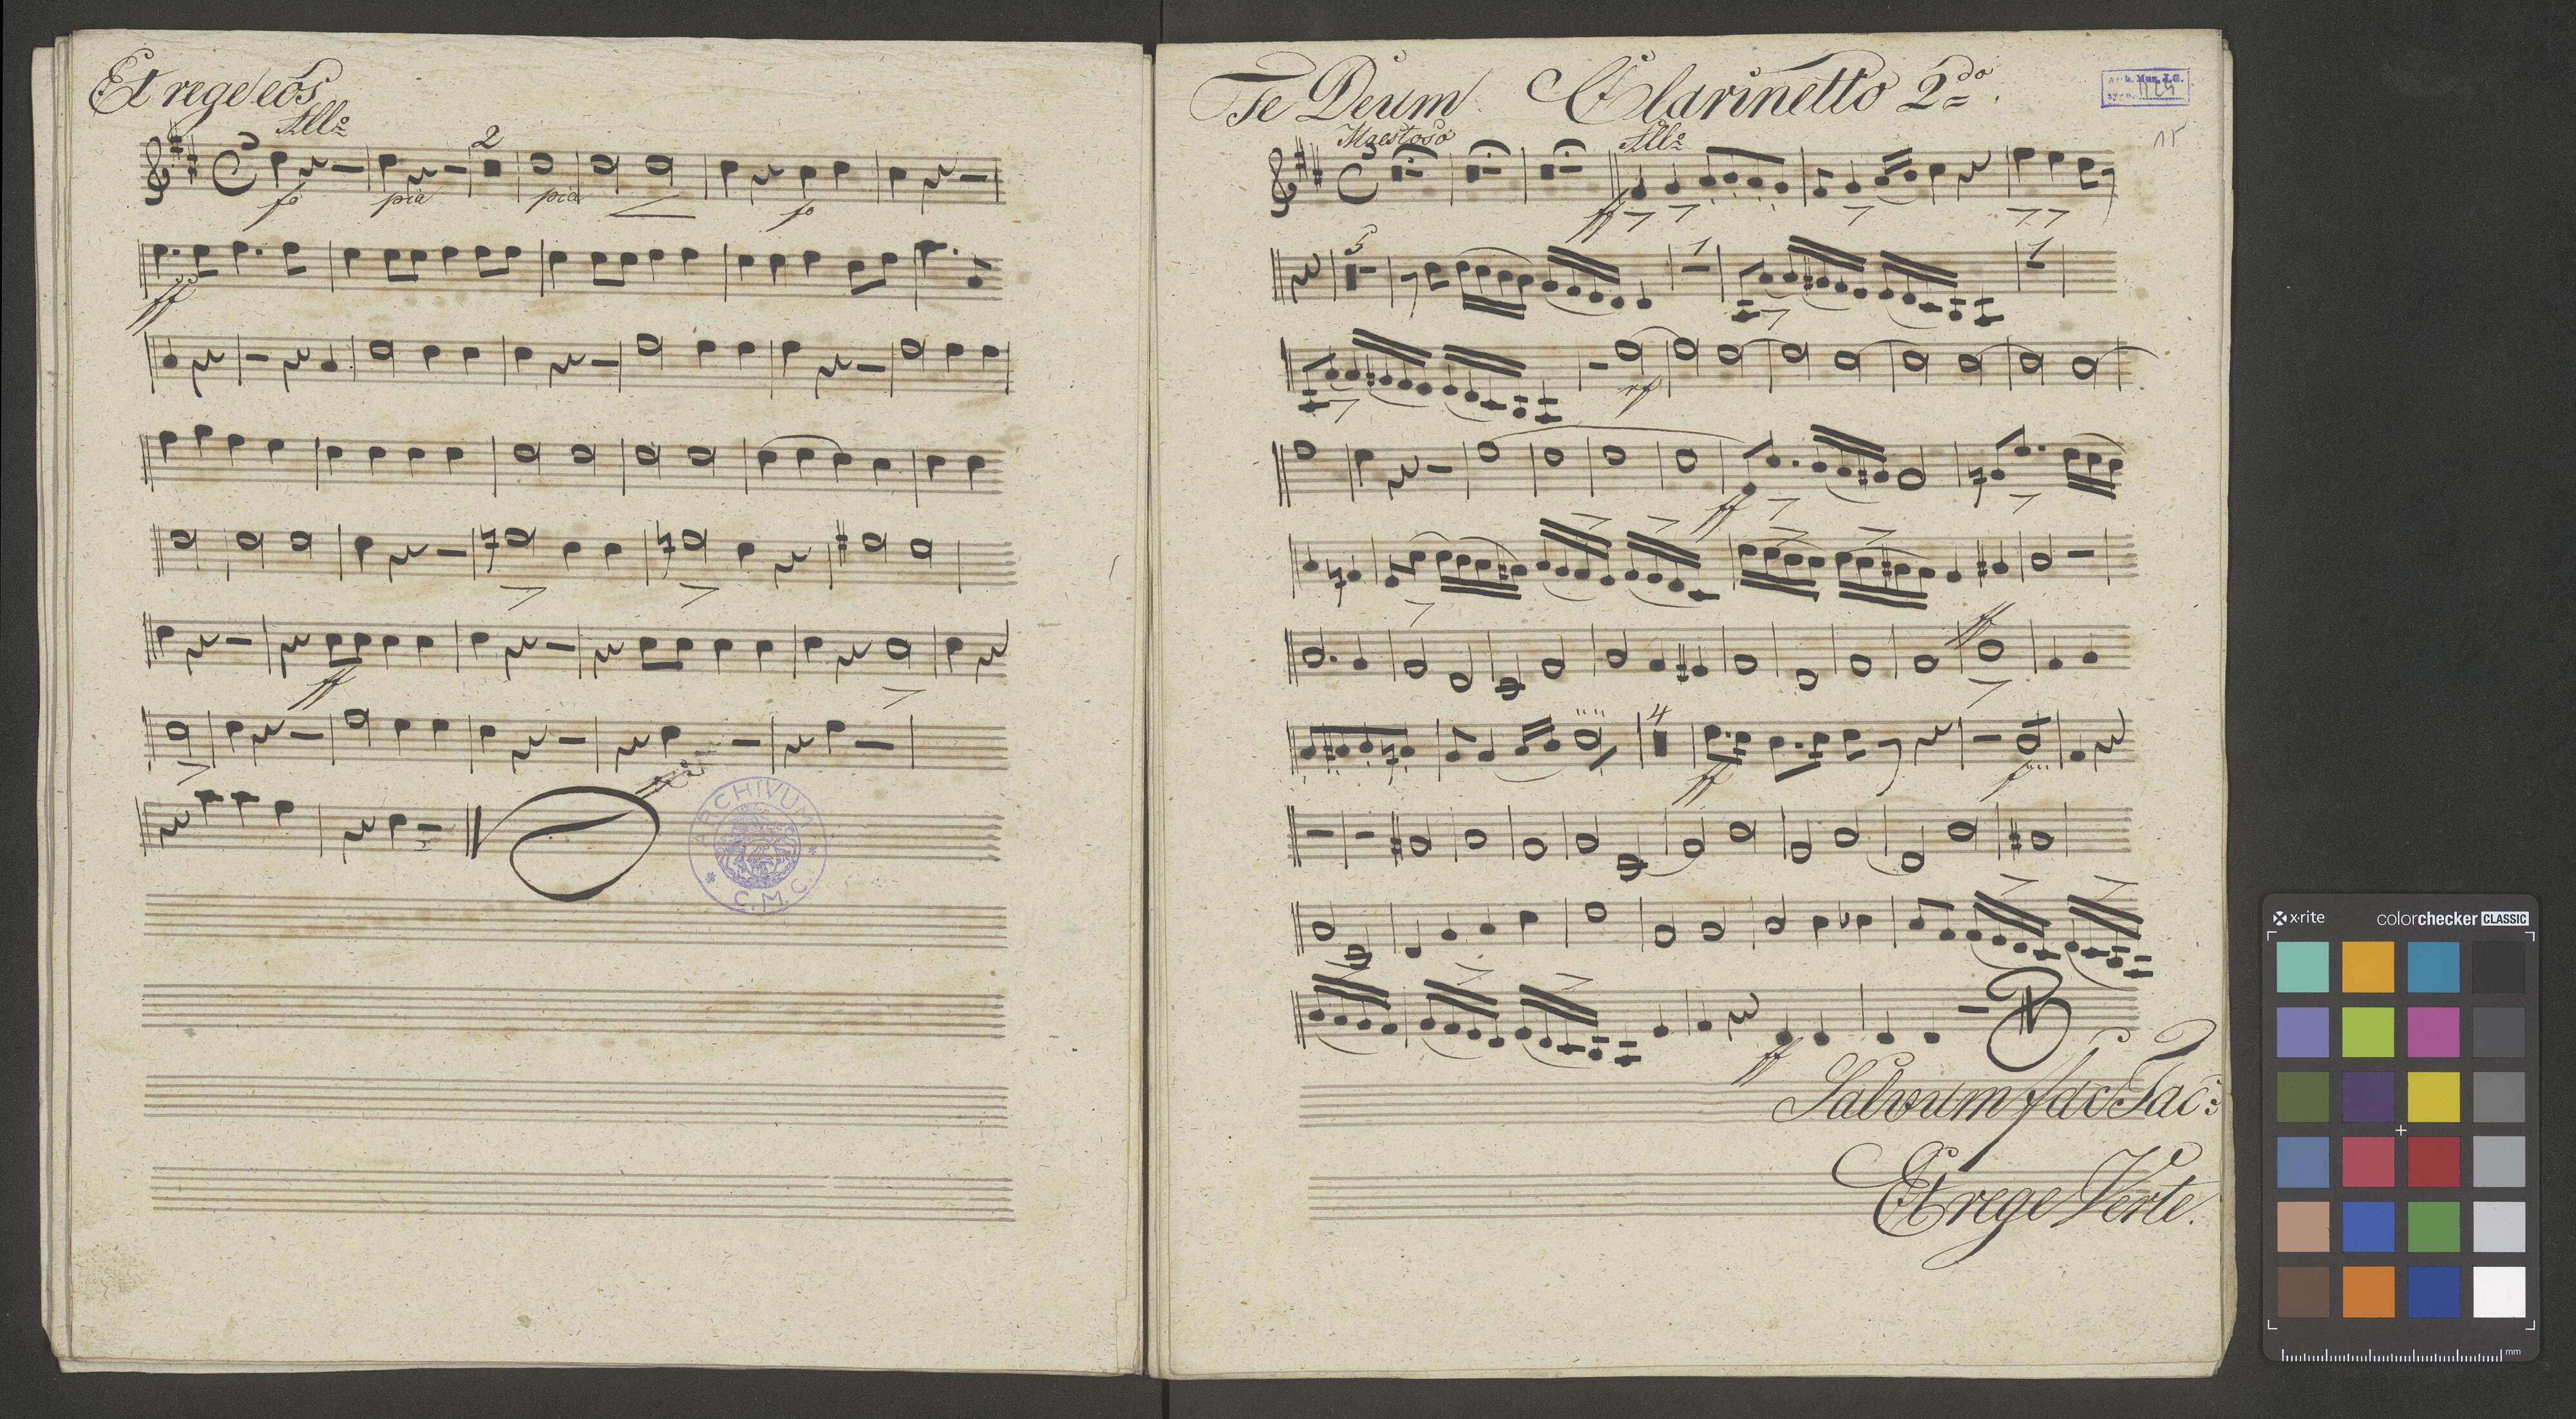 Et rege eos
Allo
2
fo
pia
pia
fo
ff
ff
ARCHIVUM
C. M. C.
Te Deum Clarinetto 2do.
Maestoso
Allo
ff
5
1
1
rf
ff
ff
4
ff
ff
Salvum fac Tac:
Et rege Verte.
x-rite
colorchecker CLASSIC
mm